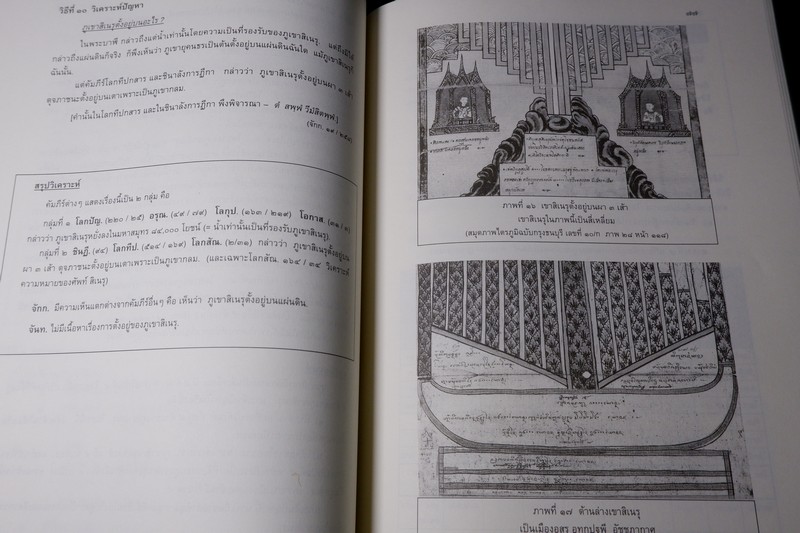 วิธีที่ ๑๓ วิเคราะห์ปัญหา
ภูเขาสิเนรุตั้งอยู่บนอะไร ?
ในพระบาฬี กล่าวถึงแต่น้ำเท่านั้นโดยความเป็นที่รองรับของภูเขาสิเนรุ. แต่ถึงมิได้
กล่าวถึงแผ่นดินก็จริง ก็พึงเห็นว่า ภูเขายุคนธรเป็นต้นตั้งอยู่บนแผ่นดินฉันใด แม้ภูเขาสิเนรุก็
ฉันนั้น.
แต่คัมภีร์โลกทีปกสาร และชินาลังการฎีกา กล่าวว่า ภูเขาสิเนรุตั้งอยู่บนผา ๓ เส้า
ดุจภาชนะตั้งอยู่บนเตาเพราะเป็นภูเขากลม.
[คำนั้นในโลกทีปกสาร และในชินาลังการฎีกา พึงพิจารณา – ตํ สพฺพํ วีมํสิตพฺพํ]
(จักก. ๑๙ / ๒๕๗)
สรุปวิเคราะห์
คัมภีร์ต่างๆ แสดงเรื่องนี้เป็น ๒ กลุ่ม คือ
กลุ่มที่ ๑ โลกปัญ. (๒๒๐ / ๒๕) อรุณ. (๔๙ / ๗๙) โลกุป. (๑๖๓ / ๒๑๙) โอกาส. (๓๑ / ๓)
กล่าวว่า ภูเขาสิเนรุหยั่งลงในมหาสมุทร ๘๔,๐๐๐ โยชน์ (= น้ำเท่านั้นเป็นที่รองรับภูเขาสิเนรุ).
กลุ่มที่ ๒ ชินฎี. (๙๔) โลกทีป. (๕๑๔ / ๑๖๙) โลกสัณ. (๒/๓๑) กล่าวว่า ภูเขาสิเนรุตั้งอยู่บน
ผา ๓ เส้า ดุจภาชนะตั้งอยู่บนเตาเพราะเป็นภูเขากลม. (และเฉพาะโลกสัณ. ๑๖๔ / ๓๔ วิเคราะห์
ความหมายของศัพท์ สิเนรุ)
จักก. มีความเห็นแตกต่างจากคัมภีร์อื่นๆ คือ เห็นว่า ภูเขาสิเนรุตั้งอยู่บนแผ่นดิน.
จันท. ไม่มีเนื้อหาเรื่องการตั้งอยู่ของภูเขาสิเนรุ.
๗๗
ภาพที่ ๑๖ เขาสิเนรุตั้งอยู่บนผา ๓ เส้า
เขาสิเนรุในภาพนี้เป็นสี่เหลี่ยม
(สมุดภาพไตรภูมิฉบับกรุงธนบุรี เลขที่ ๑๐/ก ภาพ ๒๘ หน้า ๑๑๘)
ภาพที่ ๑๗ ด้านล่างเขาสิเนรุ
เป็นเมืองอสุร อุทกปฐพี อัชชฏากาศ